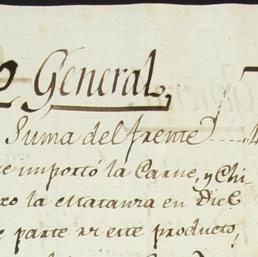 General,
Suma del frente
importó la Carne, y Chi
la matanza en Dice
parte de este producto,